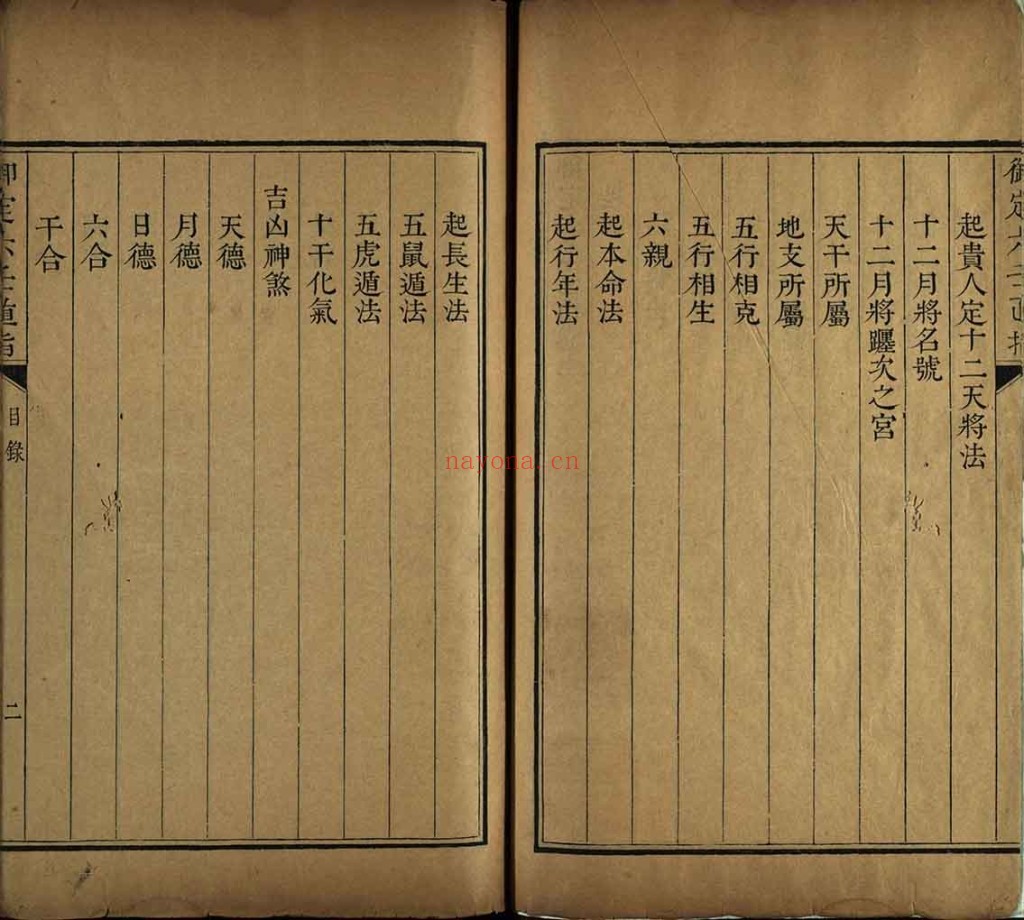 御定六壬直指
起貴人定十二天將法
十二月將名號
十二月將躔次之宮
天干所屬
地支所屬
五行相克
五行相生
六親
起本命法
起行年法
起長生法
五鼠遁法
五虎遁法
十干化氣
吉凶神煞
天德
月德
日德
六合
干合
御定六壬直指
目錄
二
nayona.cn